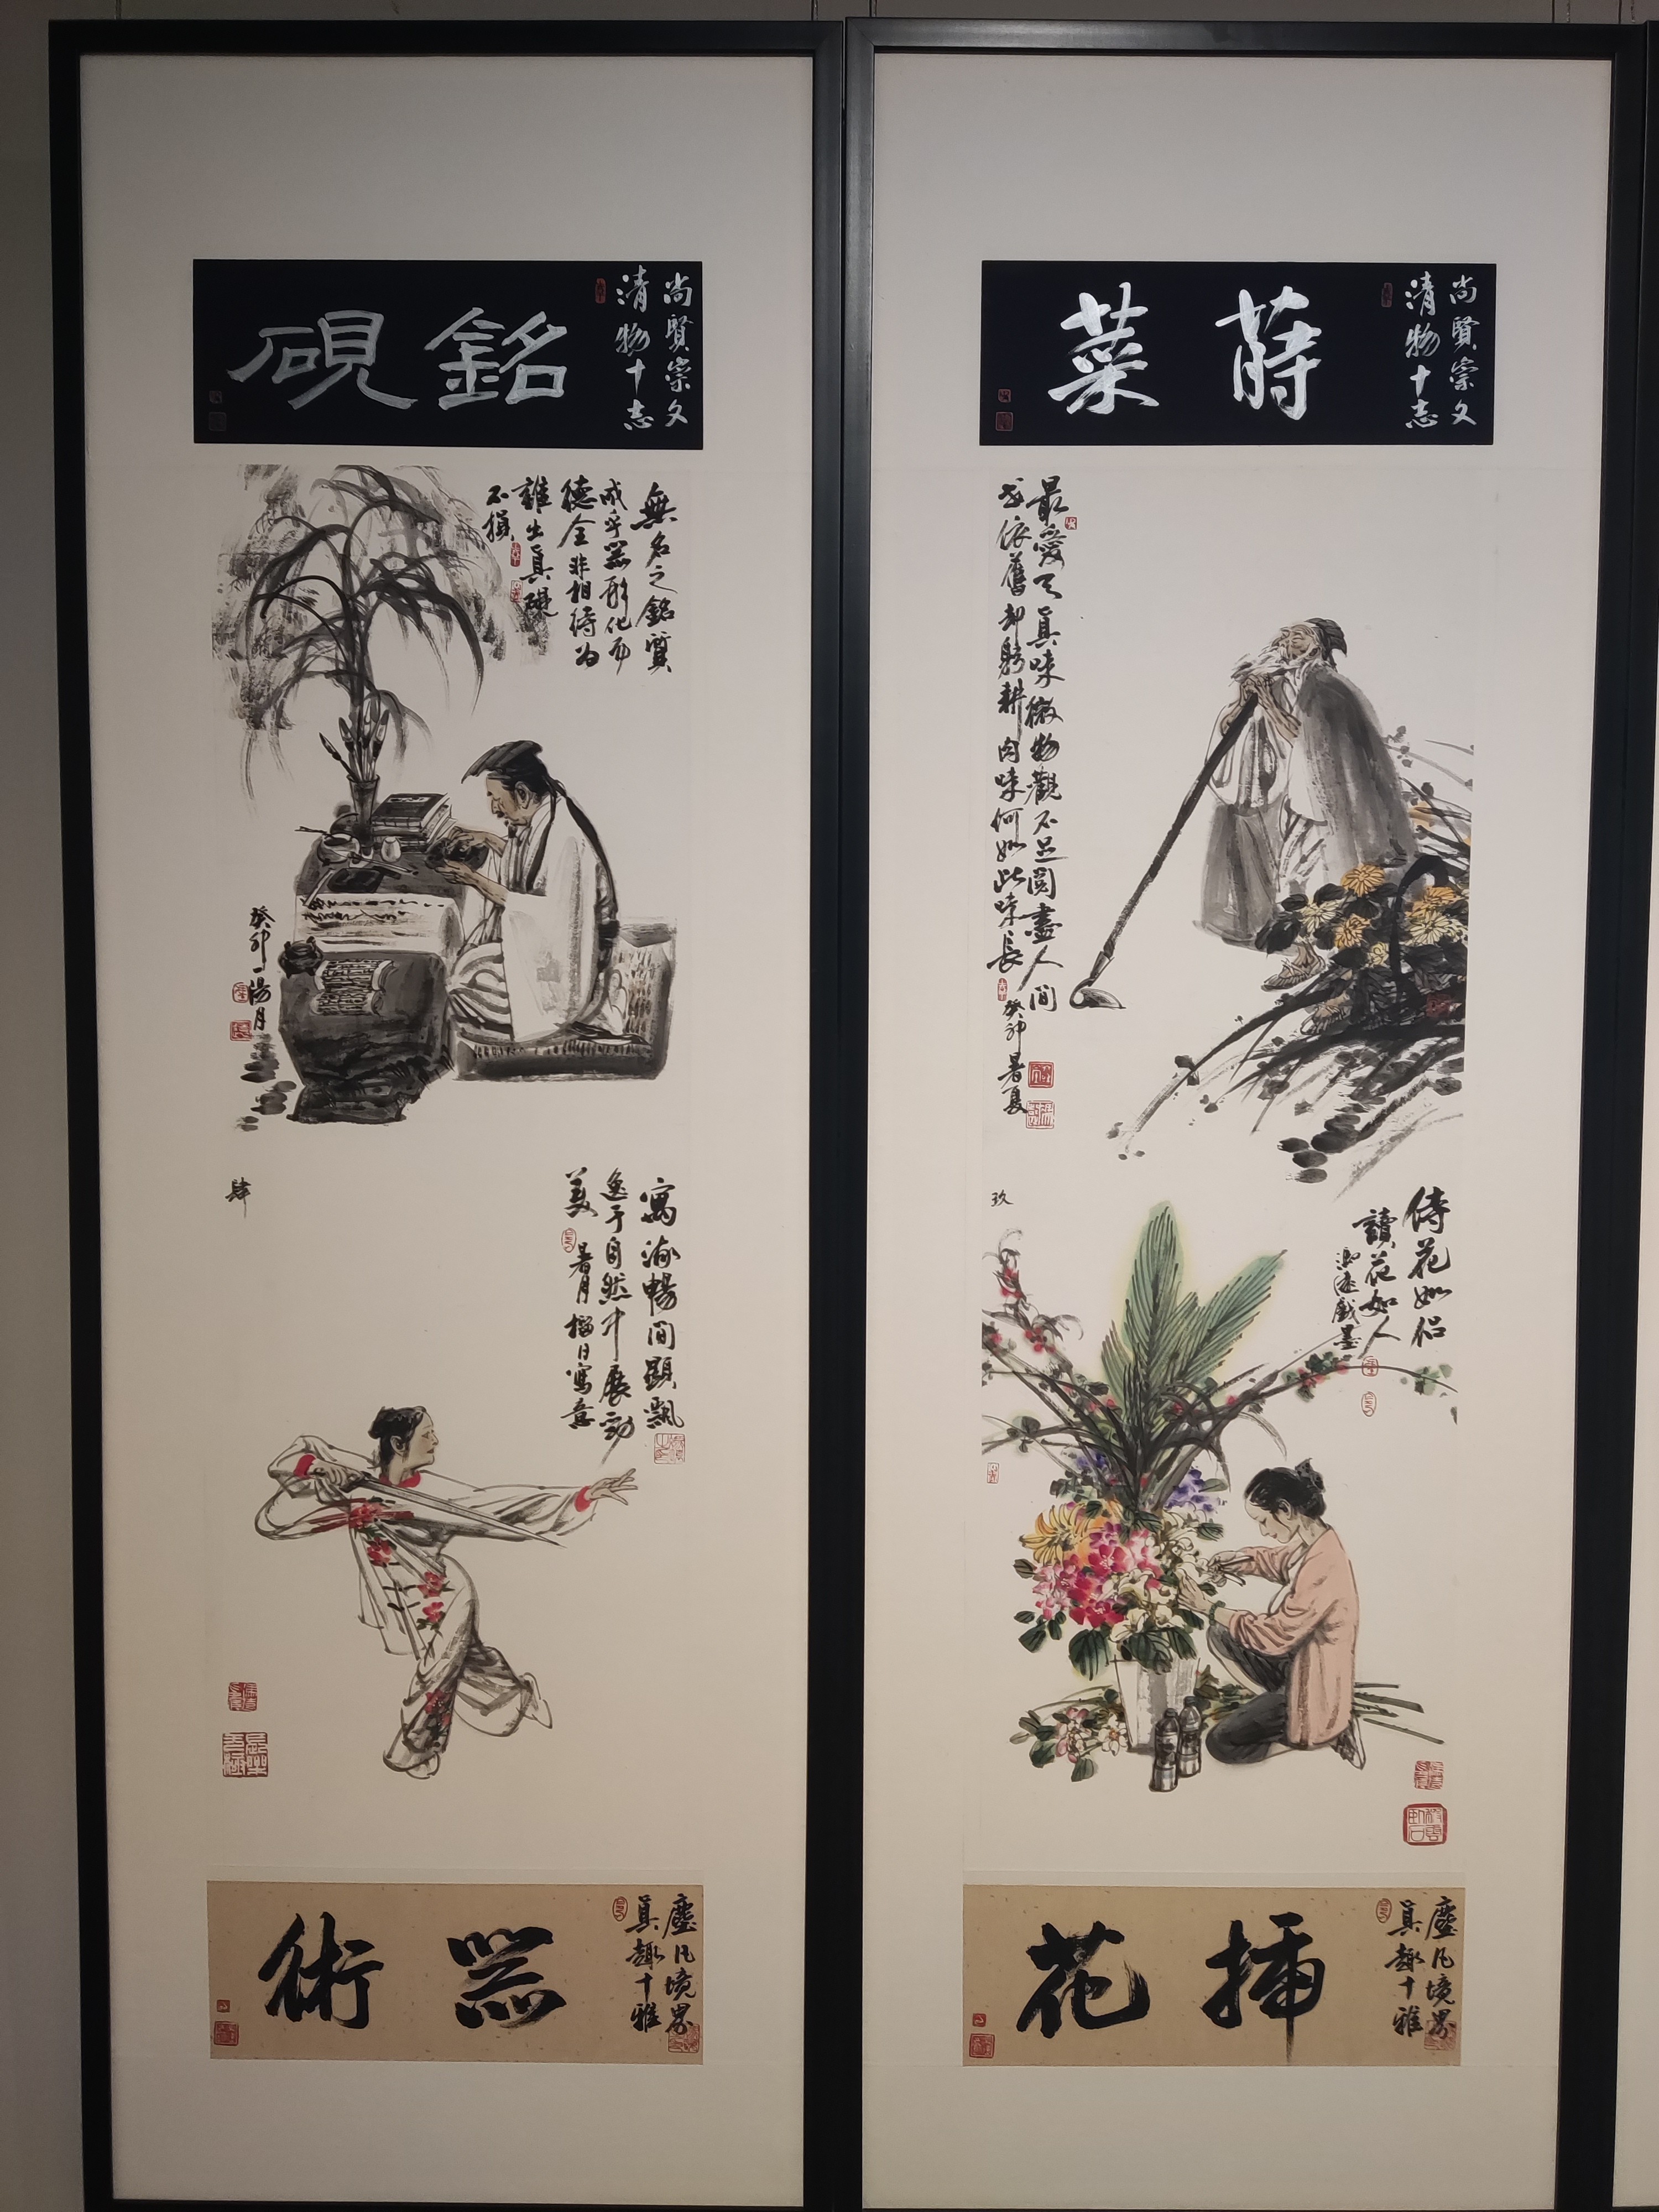 尚賢崇文
清物十志
銘硯
無名之銘質
成乎器形化而
德全非相待為
雜出真礙
不損
癸卯
湯月
肆
寓海暢間顯飄
逸于自然中展勁
美
暑月榴日寫意
塵凡境界
真趣十雅
器術
尚賢崇文
清物十志
蒔菜
最愛天真味微物觀不足閱盡人間
花依舊却躬耕肉味何如此味長
癸卯暑夏
玖
侍花如侶
讀花如人
戲墨
塵凡境界
真趣十雅
插花